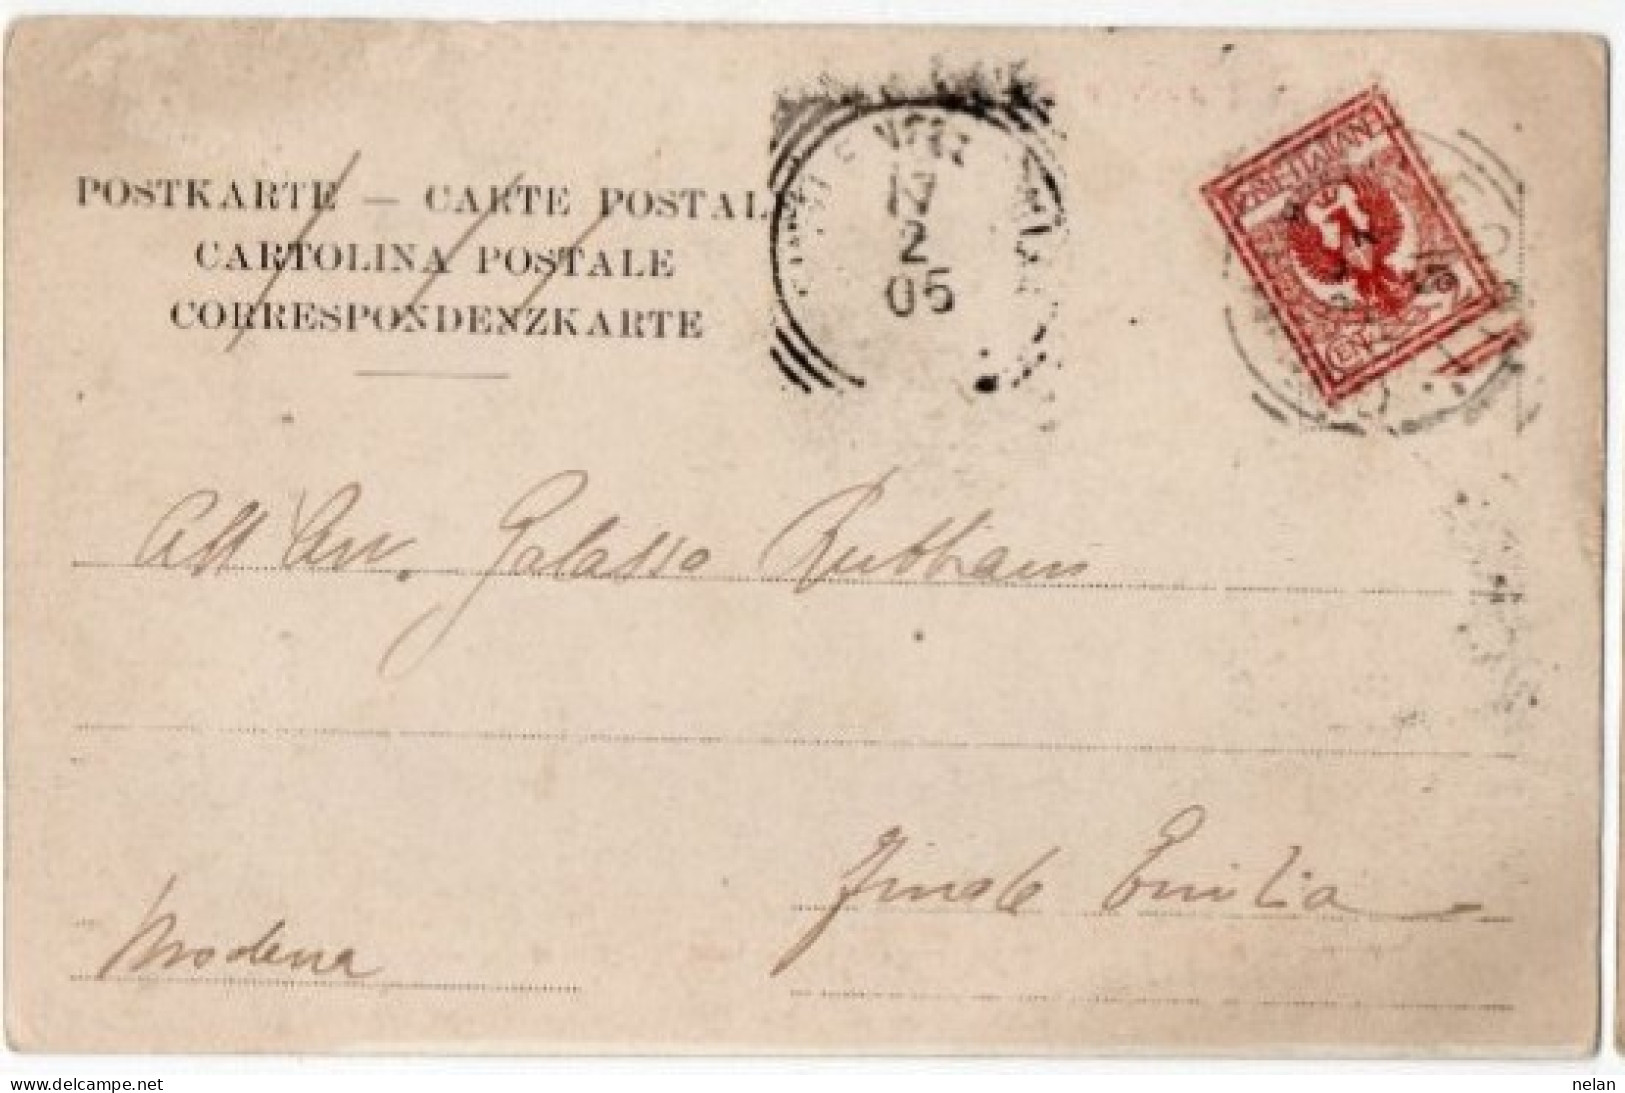 POSTKARTE — CARTE POSTAL
CARTOLINA POSTALE
CORRESPONDENZKARTE
12
2
05
All' Avv. Galasso
Finale Emilia
Modena
www.delcampe.net
nelan